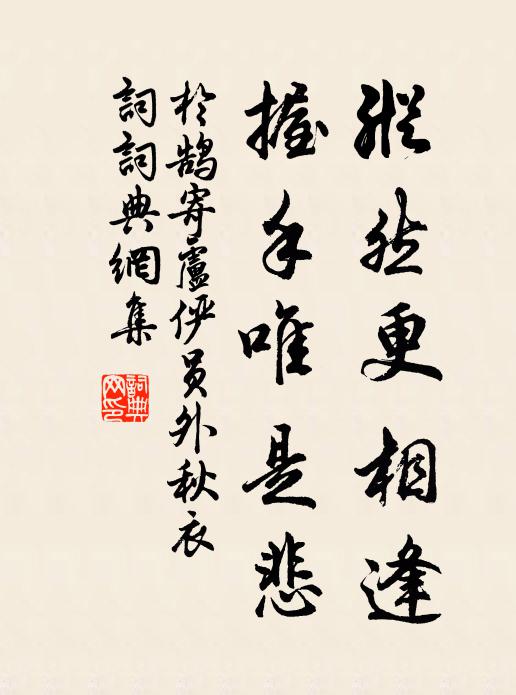 縱然更相逢
握手唯是悲
於鵠寄盧儼員外秋衣
詞詞典網集
詞典網印